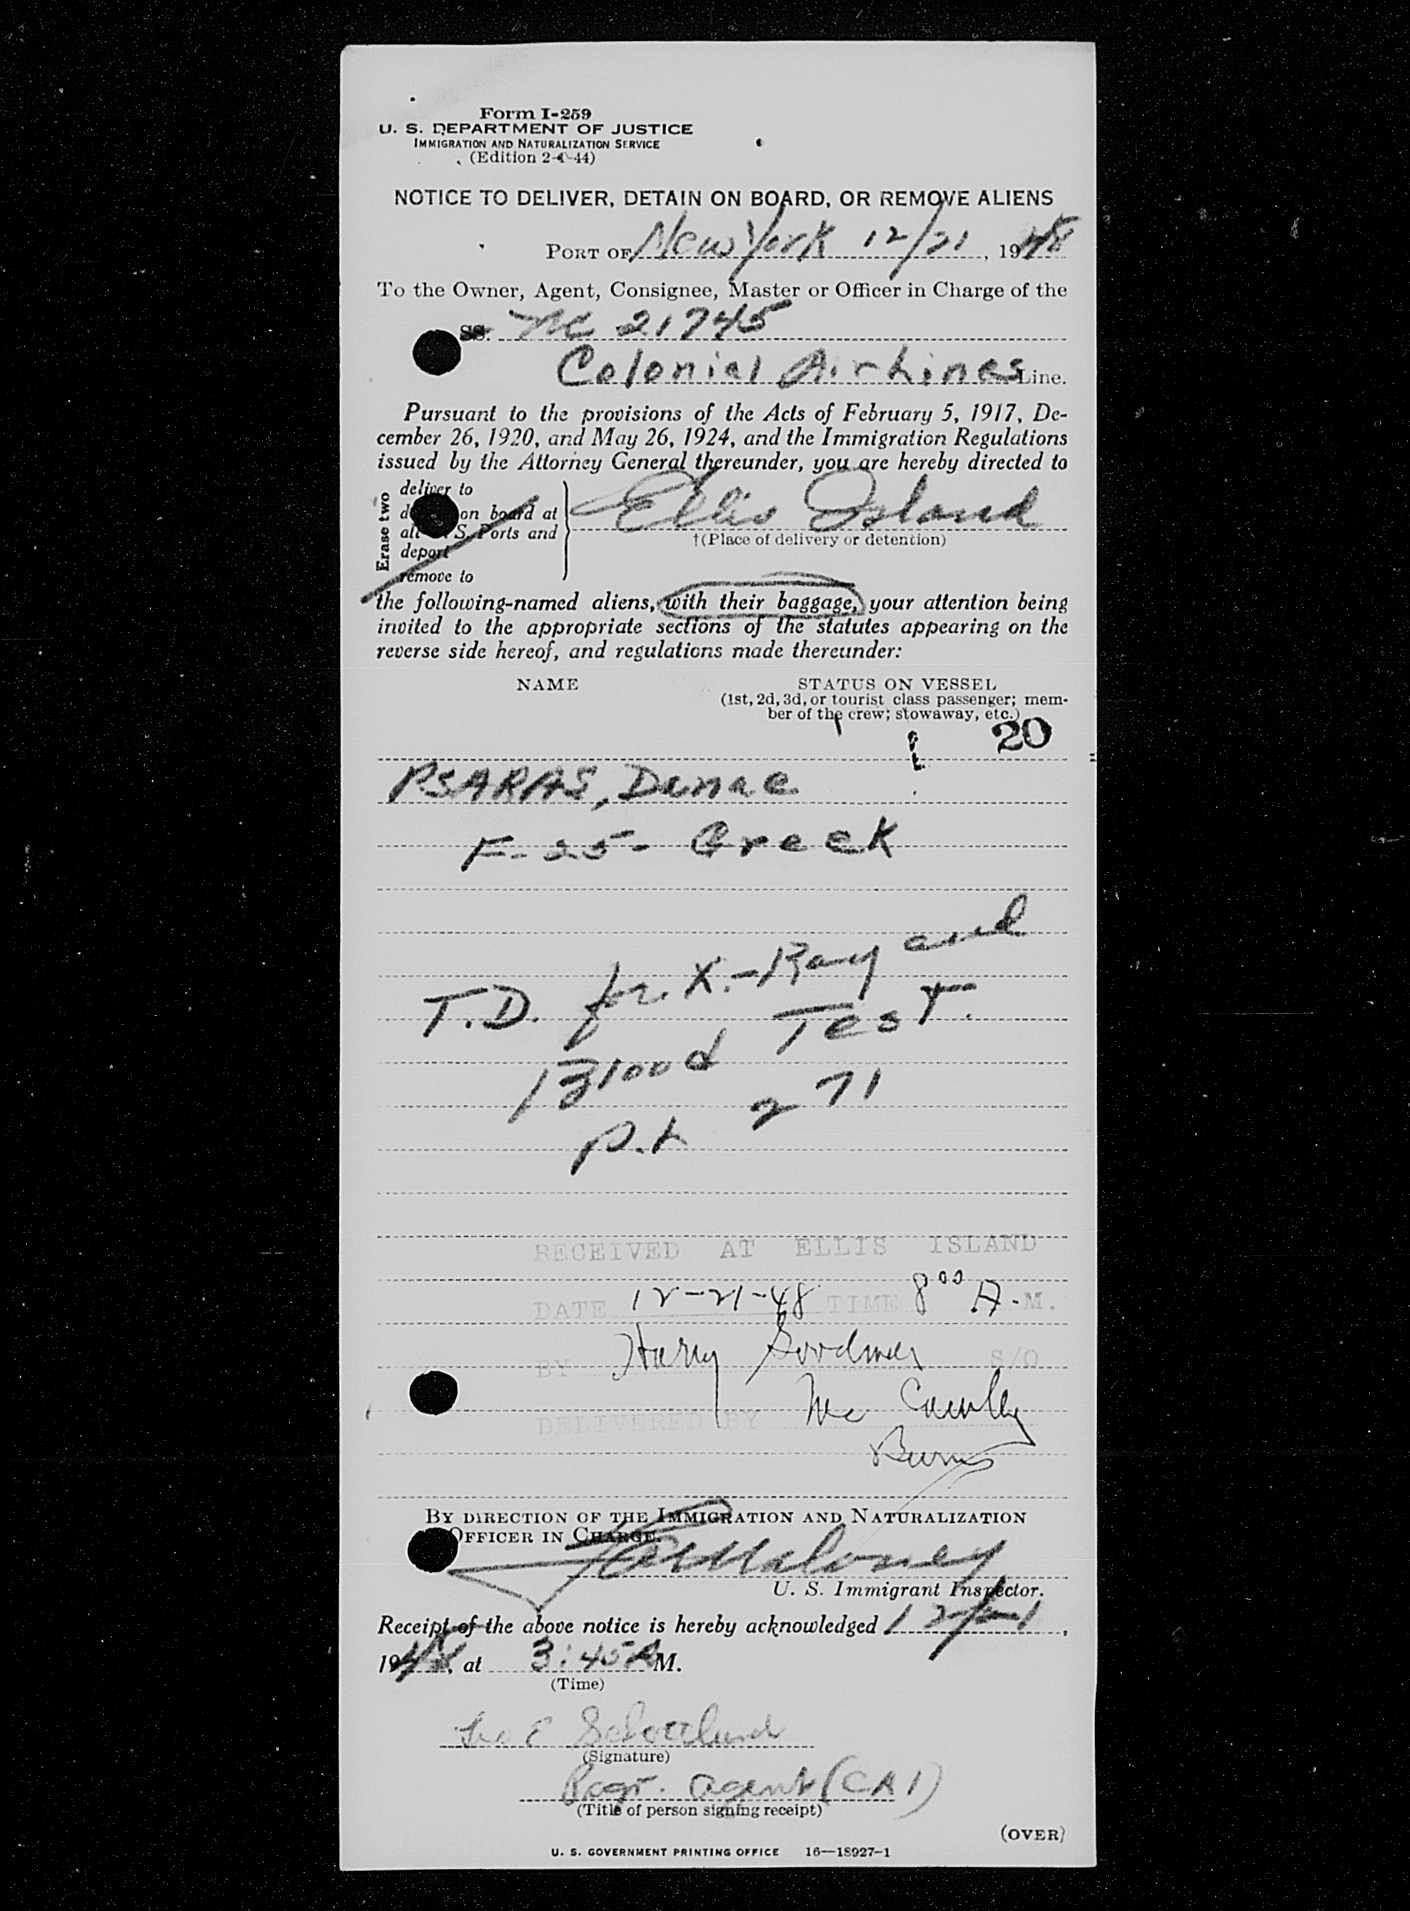 Form I-259
U. S. DEPARTMENT OF JUSTICE
IMMIGRATION AND NATURALIZATION SERVICE
(Edition 2-1-44)
NOTICE TO DELIVER, DETAIN ON BOARD, OR REMOVE ALIENS
PORT OF New York 12/21, 1948
To the Owner, Agent, Consignee, Master or Officer in Charge of the
SS. NC 21745
Colonial Airlines Line.
Pursuant to the provisions of the Acts of February 5, 1917, De-
cember 26, 1920, and May 26, 1924, and the Immigration Regulations
issued by the Attorney General thereunder, you are hereby directed to
Erase two
deliver to
on board at
all S. Ports and
deport
remove to
Ellis Island
†(Place of delivery or detention)
the following-named aliens, with their baggage, your attention being
invited to the appropriate sections of the statutes appearing on the
reverse side hereof, and regulations made thereunder:
NAME
STATUS ON VESSEL
(1st, 2d, 3d, or tourist class passenger; mem-
ber of the crew; stowaway, etc.)
20
PSARAS, Danae
F-25- Greek
T.D. for X-Ray and
Blood Test.
P.L 271
RECEIVED AT ELLIS ISLAND
DATE 12-21-48 TIME 8 00 A.M.
BY Harry Goodman S/O
DELIVERED BY
Burns
BY DIRECTION OF THE IMMIGRATION AND NATURALIZATION
OFFICER IN CHARGE.
Maloney
U. S. Immigrant Inspector.
Receipt of the above notice is hereby acknowledged 12/21,
1948, at 3:45 A M.
(Time)
(Signature)
Psgr. Agent (CAI)
(Title of person signing receipt)
(OVER)
U. S. GOVERNMENT PRINTING OFFICE 16—18927-1